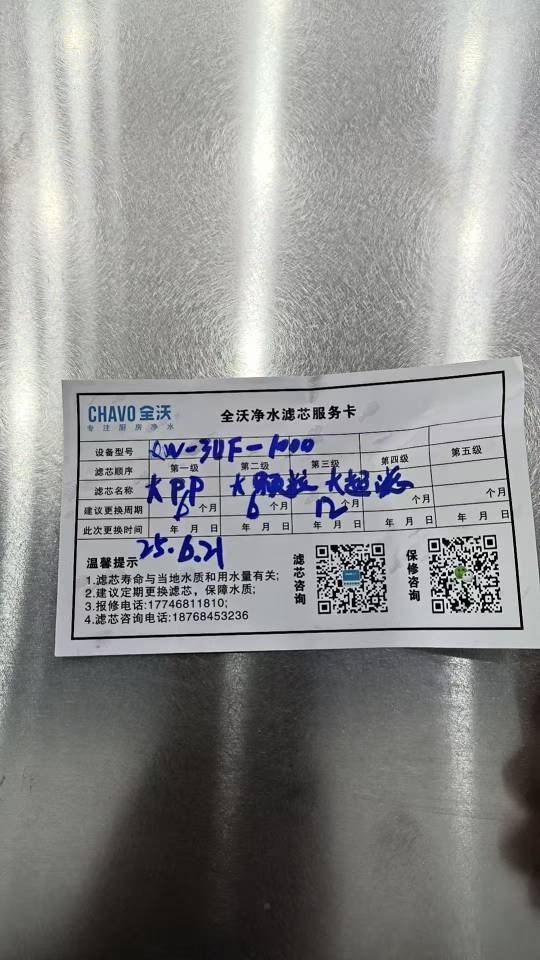 CHAVO 全沃
专注厨房净水
全沃净水滤芯服务卡
设备型号 QW-3UF-1000
滤芯顺序 第一级 第二级 第三级 第四级 第五级
滤芯名称 大PP 大颗粒 大超滤
建议更换周期 6个月 6个月 12个月 个月 个月
此次更换时间 年 月 日 年 月 日 年 月 日 年 月 日 年 月 日
25.6.21
温馨提示
1.滤芯寿命与当地水质和用水量有关;
2.建议定期更换滤芯，保障水质;
3.报修电话:17746811810;
4.滤芯咨询电话:18768453236
滤芯咨询
保修咨询